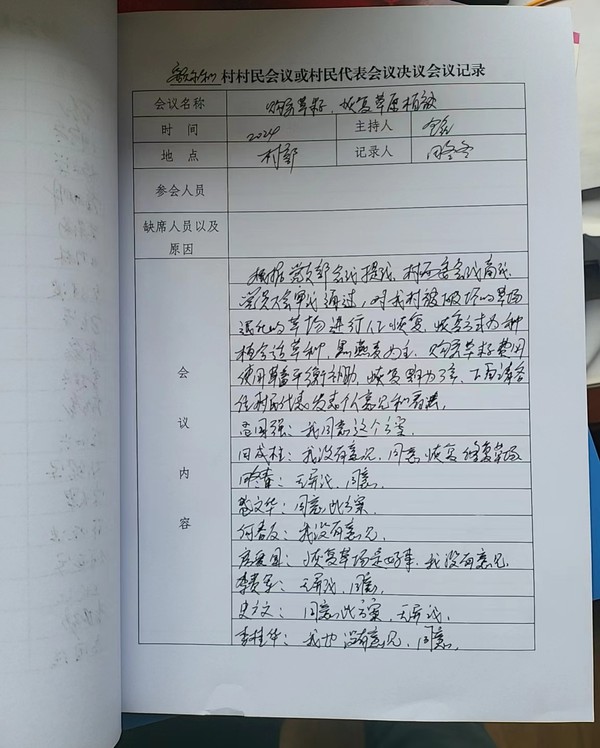 村村民会议或村民代表会议决议会议记录
会议名称 购买草籽，恢复草原植被
时 间 2024 主持人
地 点 村部 记录人
参会人员
缺席人员以及原因
会议内容
根据党支部会议提议，村两委会议商议，
党员大会审议通过，对我村被破坏的草场
退化的草场进行恢复，恢复方式为种
植合适草种，燕麦为主，购买草籽费用
使用草畜平衡补助，恢复 下面请各
位村民代表发表个人意见和看法
强：我同意这个方案。
田成柱：我没有意见，同意恢复修复草场
无异议，同意。
文华：同意此方案。
何香友：我没有意见。
恢复草场是好事，我没有意见。
李贵军：无异议，同意。
史方文：同意此方案，无异议。
李桂华：我也没有意见，同意。